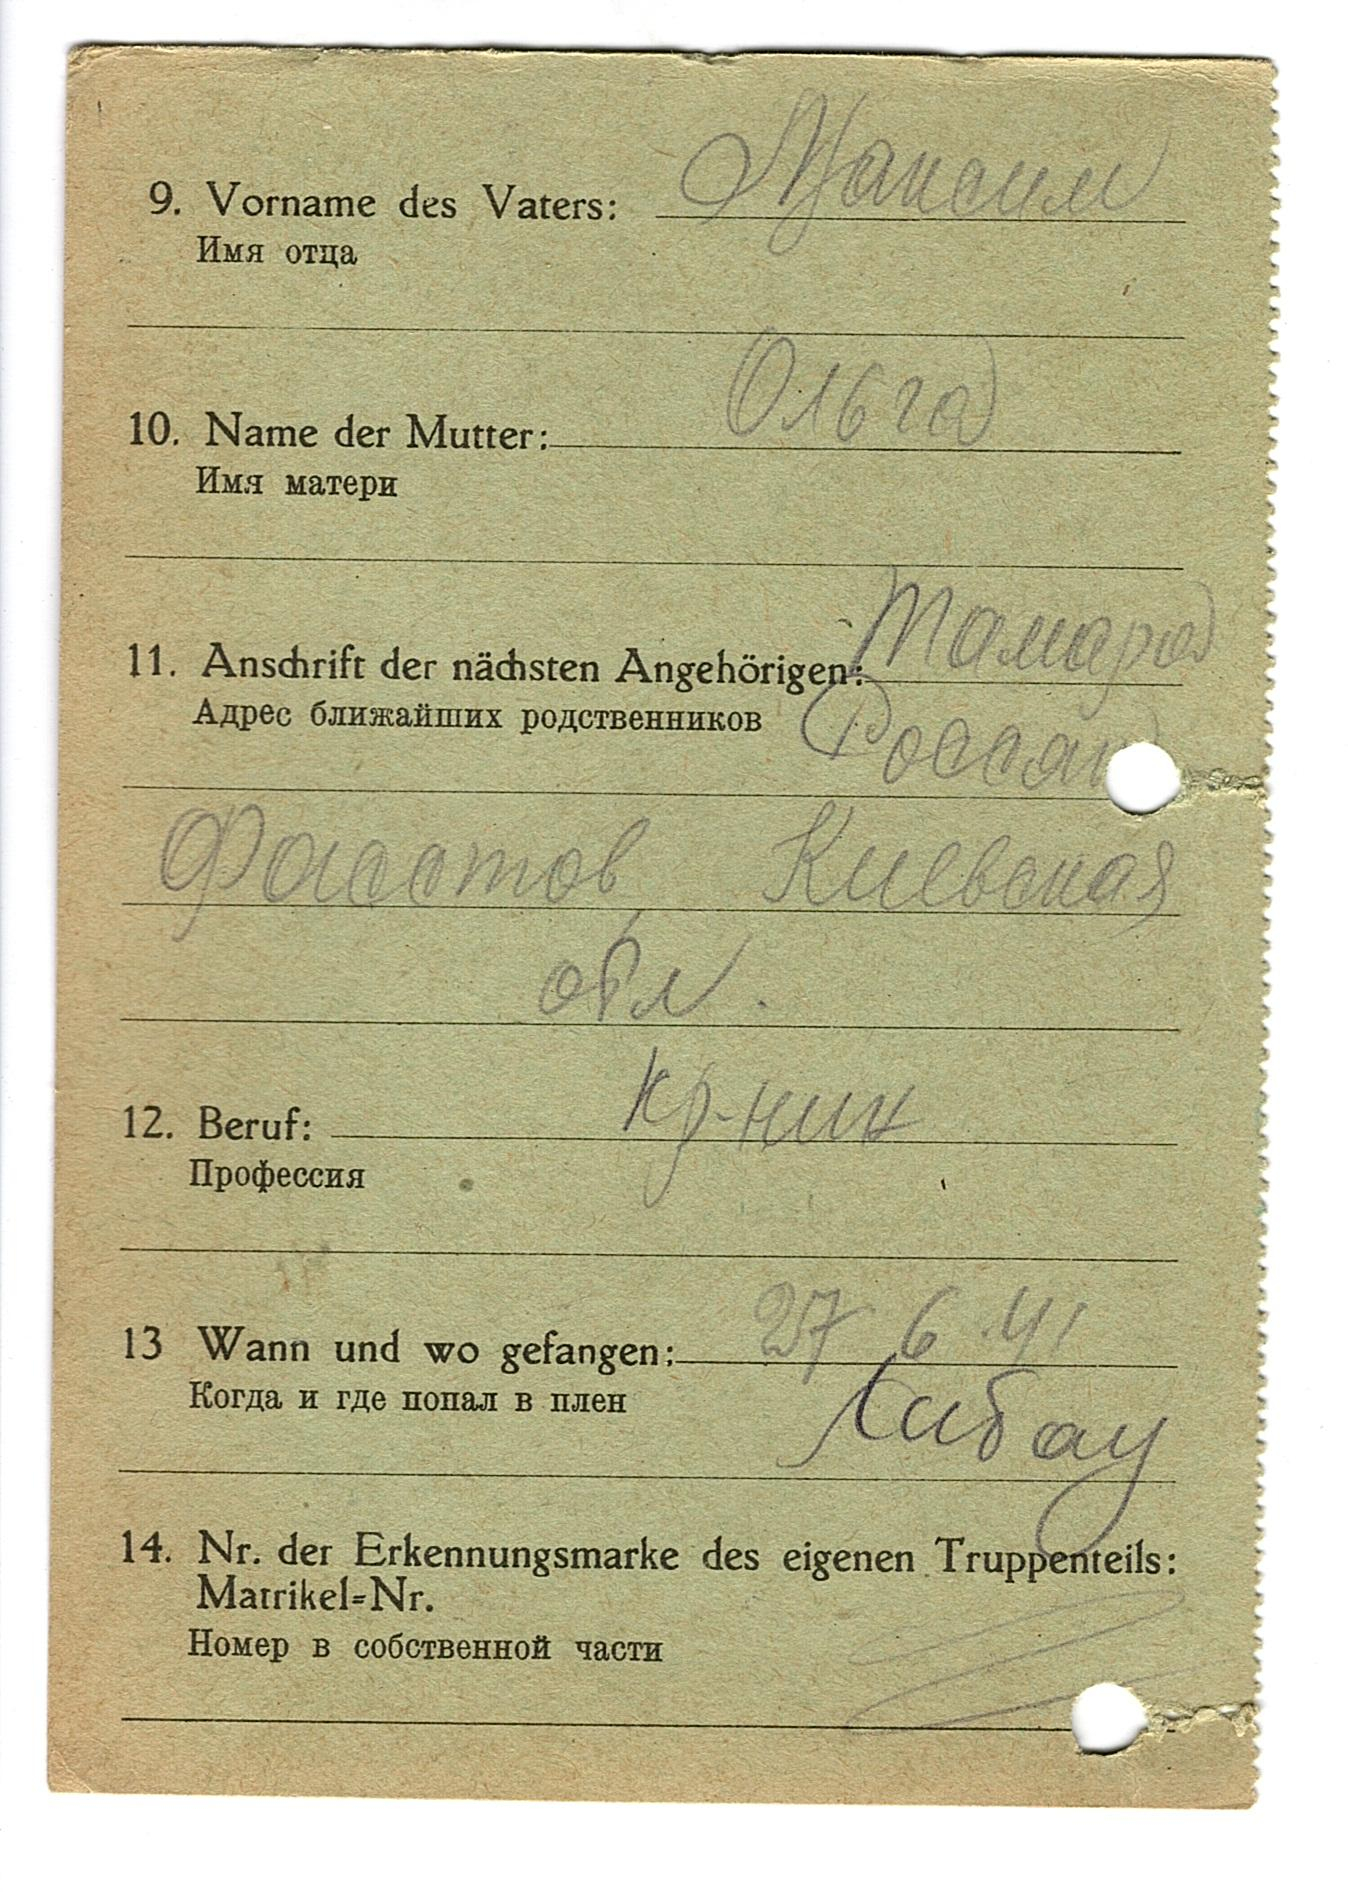 9. Vorname des Vaters: Максим
Имя отца
10. Name der Mutter: Ольга
Имя матери
11. Anschrift der nächsten Angehörigen: Тамара
Адрес ближайших родственников
Фастов Киевская
обл.
12. Beruf: кр-ник
Профессия
13 Wann und wo gefangen: 27 6.41
Когда и где попал в плен Либау
14. Nr. der Erkennungsmarke des eigenen Truppenteils:
Matrikel=Nr.
Номер в собственной части